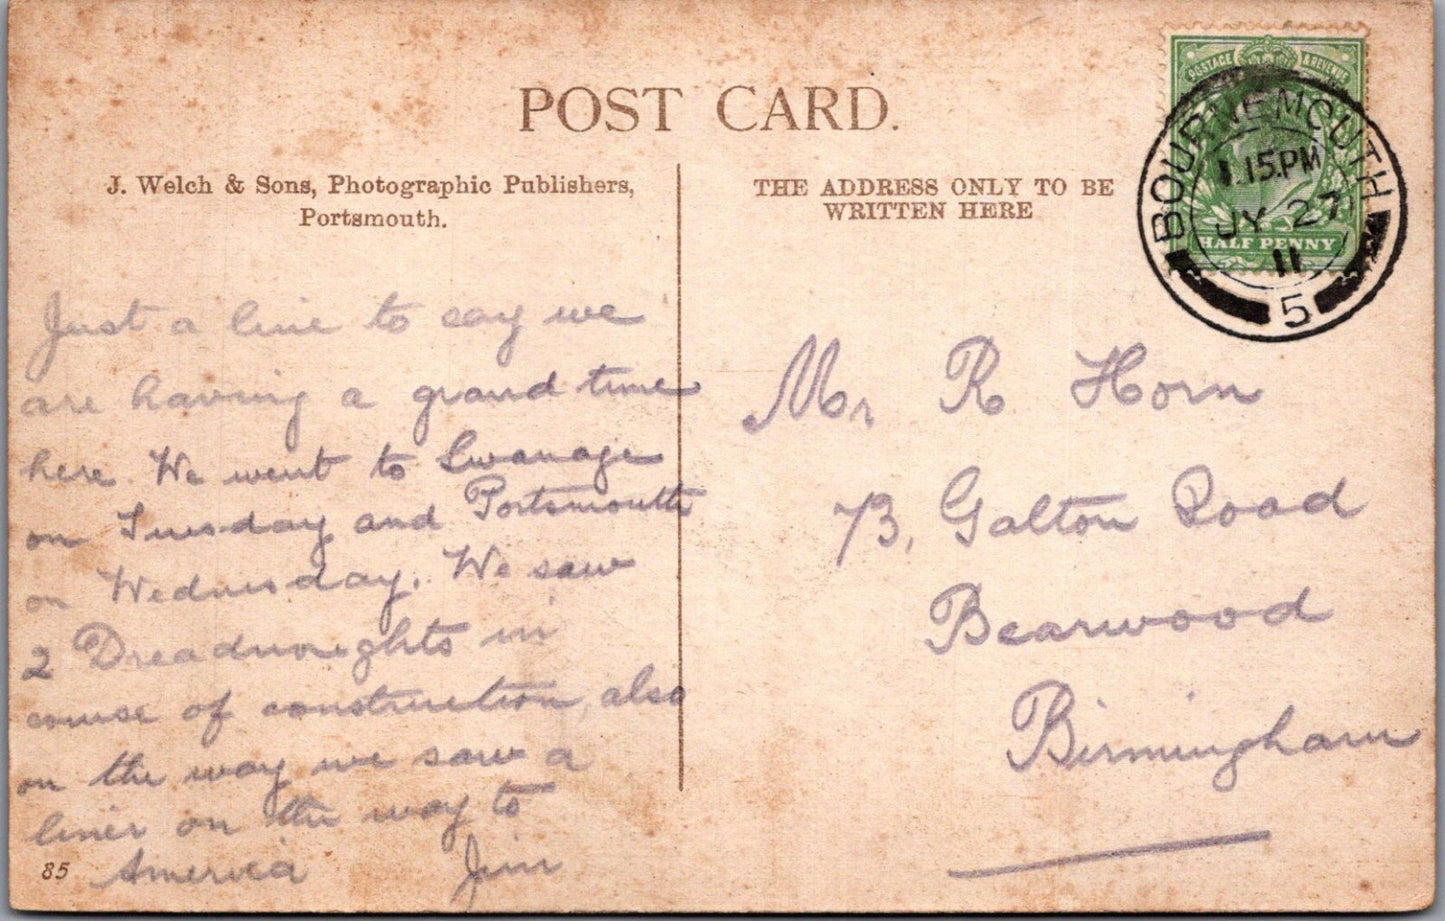 POST CARD.
J. Welch & Sons, Photographic Publishers,
Portsmouth.
THE ADDRESS ONLY TO BE
WRITTEN HERE
POSTAGE & REVENUE
HALF PENNY
BOURNEMOUTH
1.15.PM
JY 27
11
5
Just a line to say we
are having a grand time
here. We went to Swanage
on Tuesday and Portsmouth
on Wednesday. We saw
2 Dreadnoughts in
course of construction, also
on the way we saw a
liner on the way to
America Jim
85
Mr R Horn
73, Galton Road
Bearwood
Birmingham